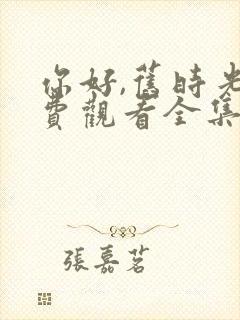 你好,舊時光
費觀看全集
張嘉茗